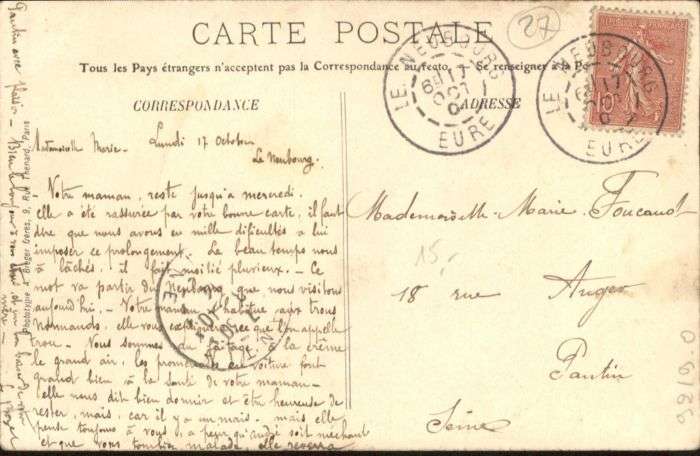 CARTE POSTALE
27
Tous les Pays étrangers n'acceptent pas la Correspondance au recto. Se renseigner à la Po
CORRESPONDANCE
ADRESSE
LE NEUBOURG
17
OCT
EURE
LE NEUBOURG
17
EURE
REPUBLIQUE FRANÇAISE
10
Mademoiselle Marie - Lundi 17 Octobre
Le Neubourg.
Notre maman, reste jusqu'a mercredi.
elle a été rassurée par votre bonne carte, il faut
dire que nous avons eu mille dificultés à lui
imposer ce prolongement. Le beau temps nous
à lâchés, il fait moitié pluvieux. - Ce
mot va partir du Neubourg que nous visitons
aujourd'hui. - Votre maman s'habitue aux trous
Normands, elle vous expliquera ce que l'on appelle
trou - Nous sommes du laitage, à la crème
le grand air, les promenades en voiture font
grand bien à la santé de votre maman -
elle nous dit bien dormir et être heureuse de
rester, mais, car il y a un mais - mais elle
pense toujours à vous, a peur qu'andré soit méchant
et que vous tombiez malade, elle reverra
Pantin avec plaisir - Bien le bonjour à
mère -
Phototypie A. Breger frères, 9, Rue Thénard, Paris
Mademoiselle Marie Foucault
15,-
18 rue Auger
Pantin
Seine